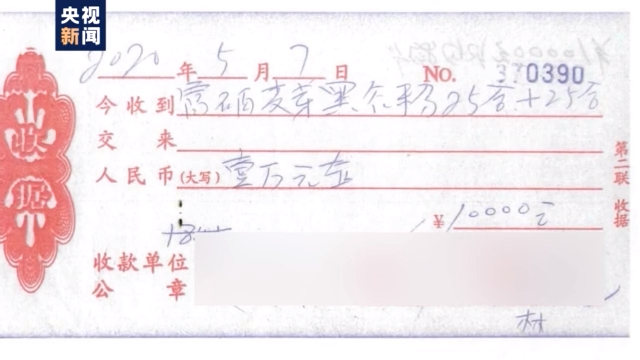 央视
新闻
2020年5月7日 NO. 370390
今收到富硒麦芽黑谷物25合+25合
交来
人民币(大写)壹万元正
¥10000元
收款单位
公章
收据
第二联 收据
材